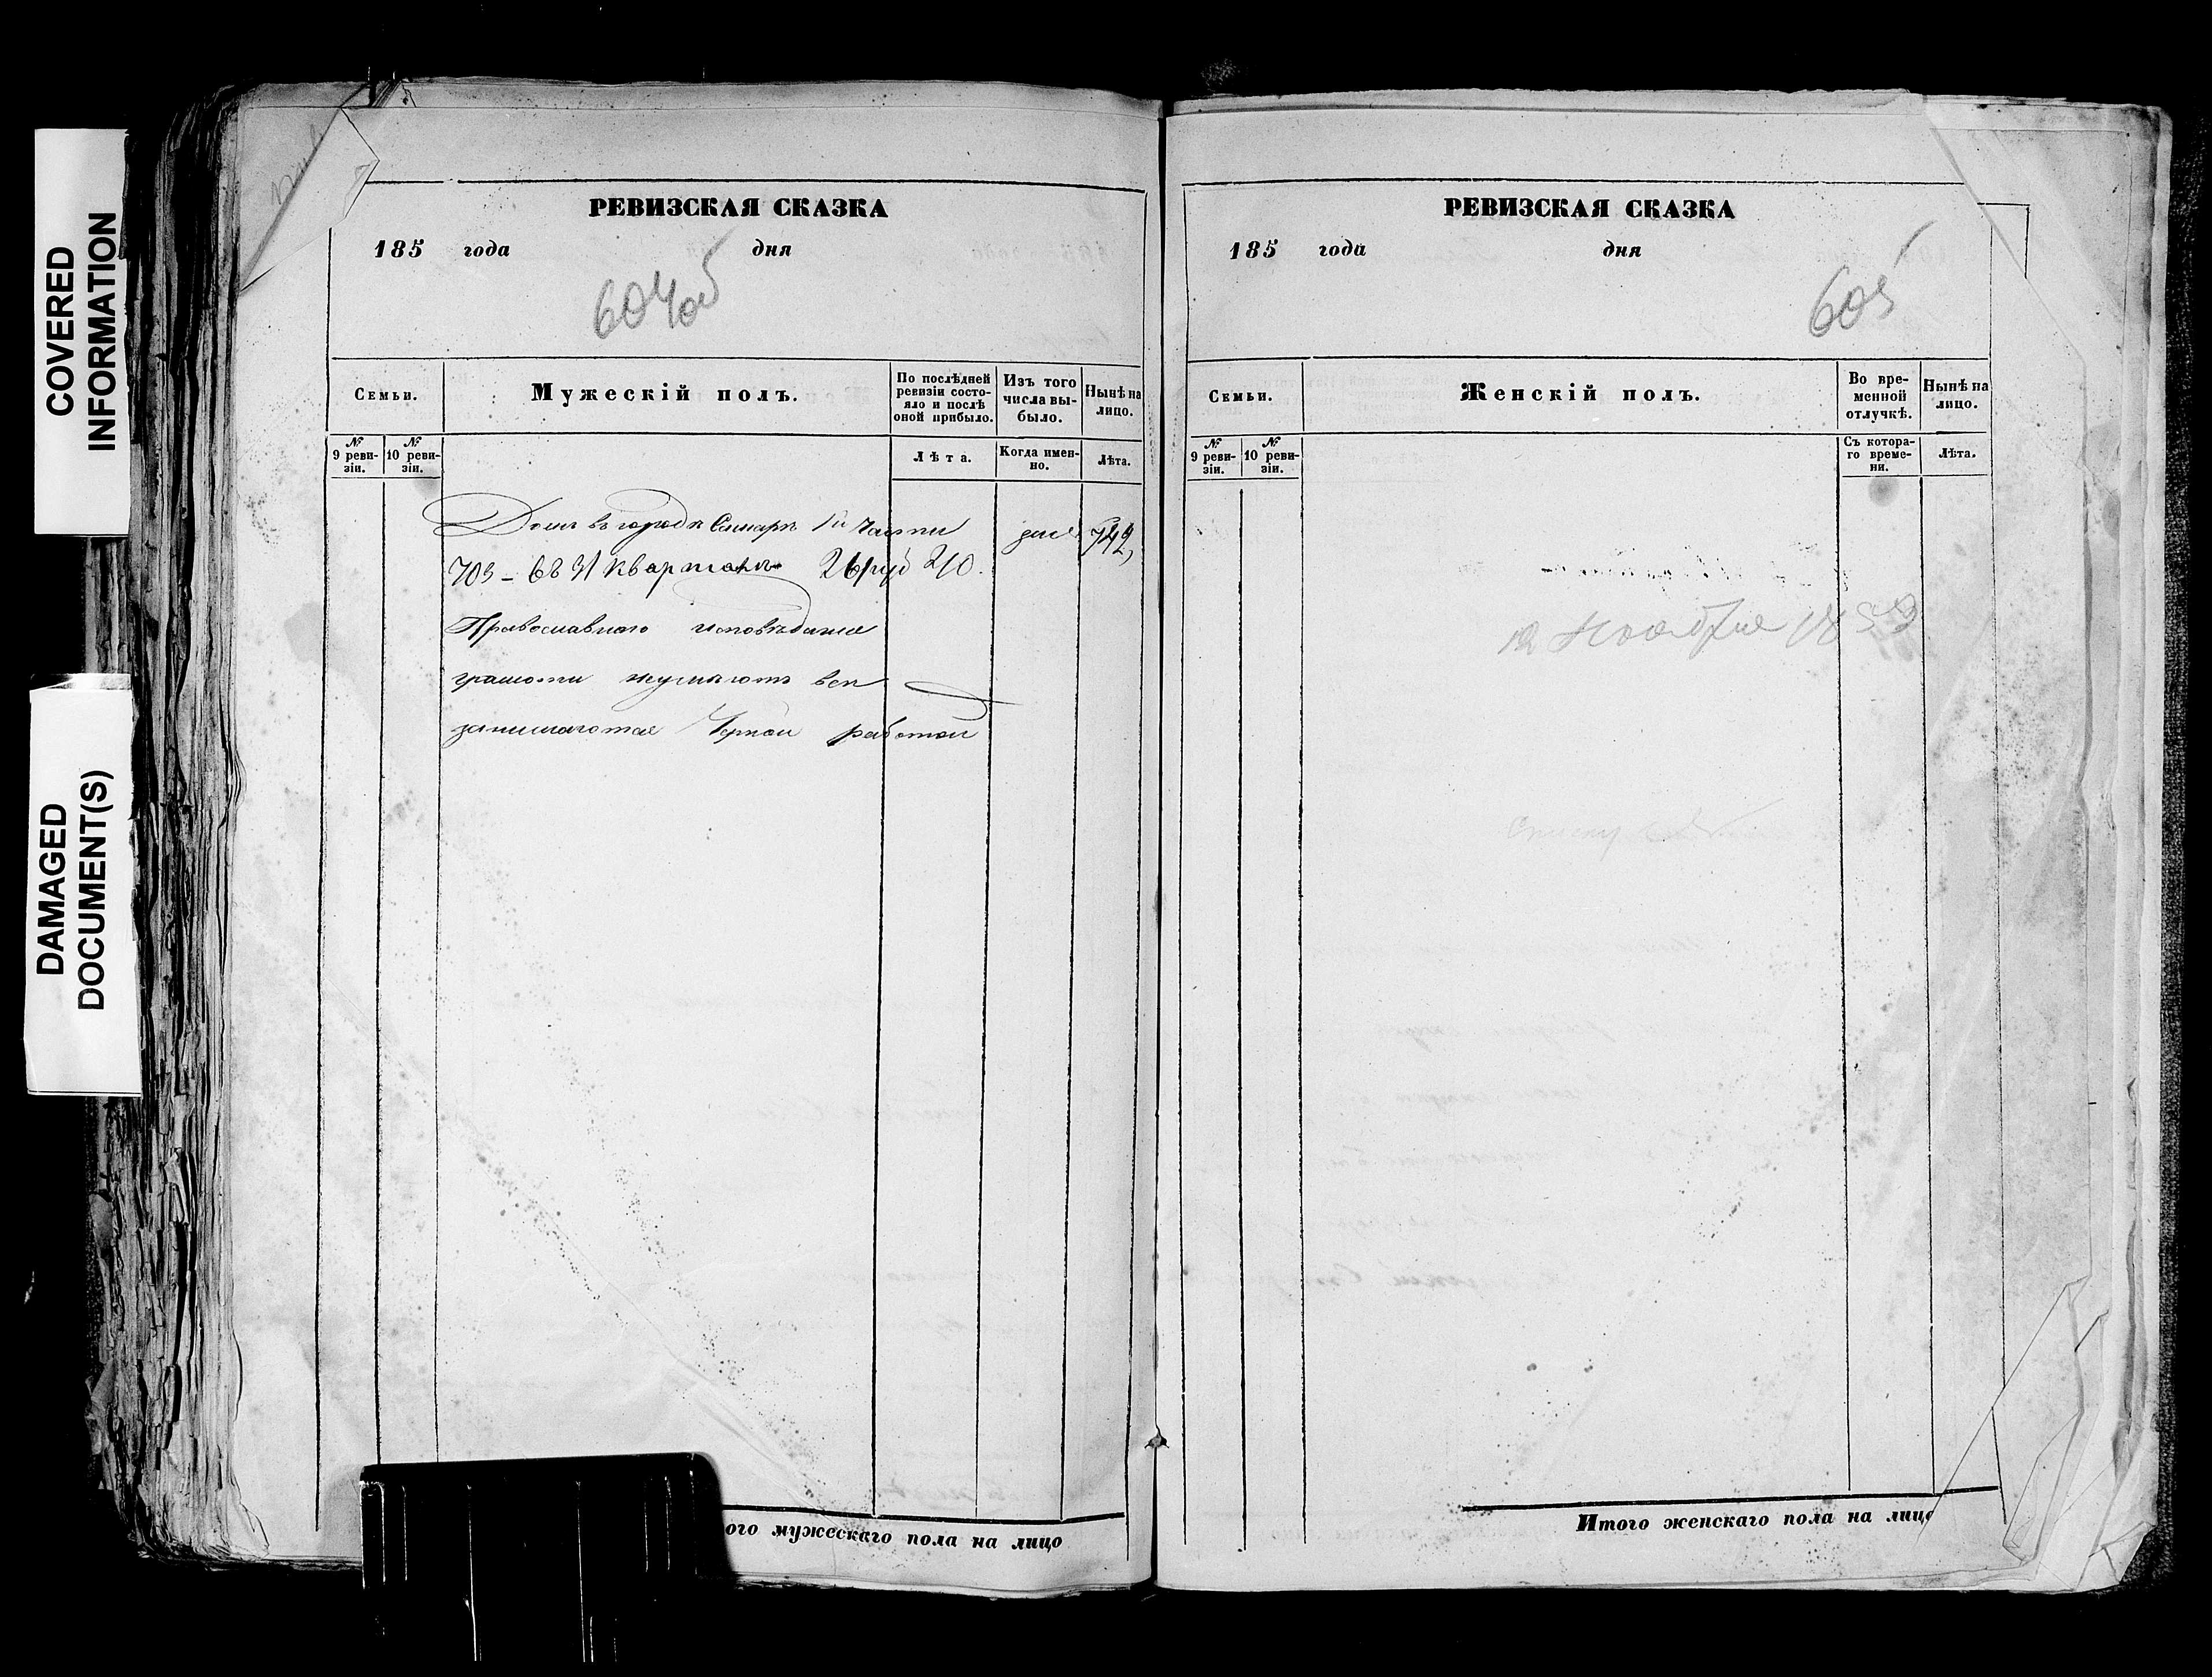 COVERED
INFORMATION
DAMAGED
DOCUMENT(S)
РЕВИЗСКАЯ СКАЗКА
185 года дня
604об
Семьи.
Мужескій полъ.
По послѣдней
ревизіи состо-
яло и послѣ
оной прибыло.
Изъ того
числа вы-
было.
Нынѣ на
лицо.
№
9 реви-
зіи.
№
10 реви-
зіи.
Лѣта.
Когда имен-
но.
Лѣта.
Домъ въ городѣ Самарѣ 1й части
703 – въ 31 кварталѣ 26 руб 20.
Православнаго исповѣданія
грамоти неумѣютъ всѣ
занимаются Чорной работой
ого мужескаго пола на лицо
РЕВИЗСКАЯ СКАЗКА
185 года дня
605
Семьи.
Женскій полъ.
Во вре-
менной
отлучкѣ.
Нынѣ на
лицо.
№
9 реви-
зіи.
№
10 реви-
зіи.
Съ котора-
го време-
ни.
Лѣта.
Ноября 1853
Итого женскаго пола на лицо